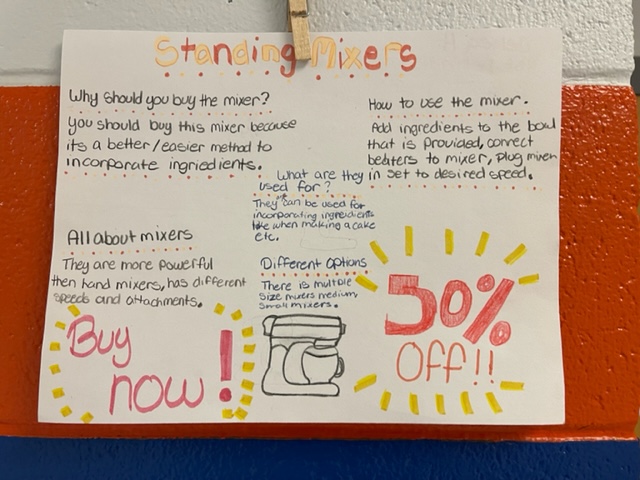 Standing Mixers
Why should you buy the mixer?
you should buy this mixer because
its a better/easier method to
incorporate ingriedients.
How to use the mixer.
Add ingredients to the bowl
that is provided, connect
beaters to mixer, plug mixer
in set to desired speed.
What are they
used for?
They can be used for
incorporating ingredients
like when making a cake
etc.
All about mixers
They are more powerful
then hand mixers, has different
speeds and attachments.
Different options
There is multple
size mixers medium,
small mixers.
Buy
now!
50%
Off!!